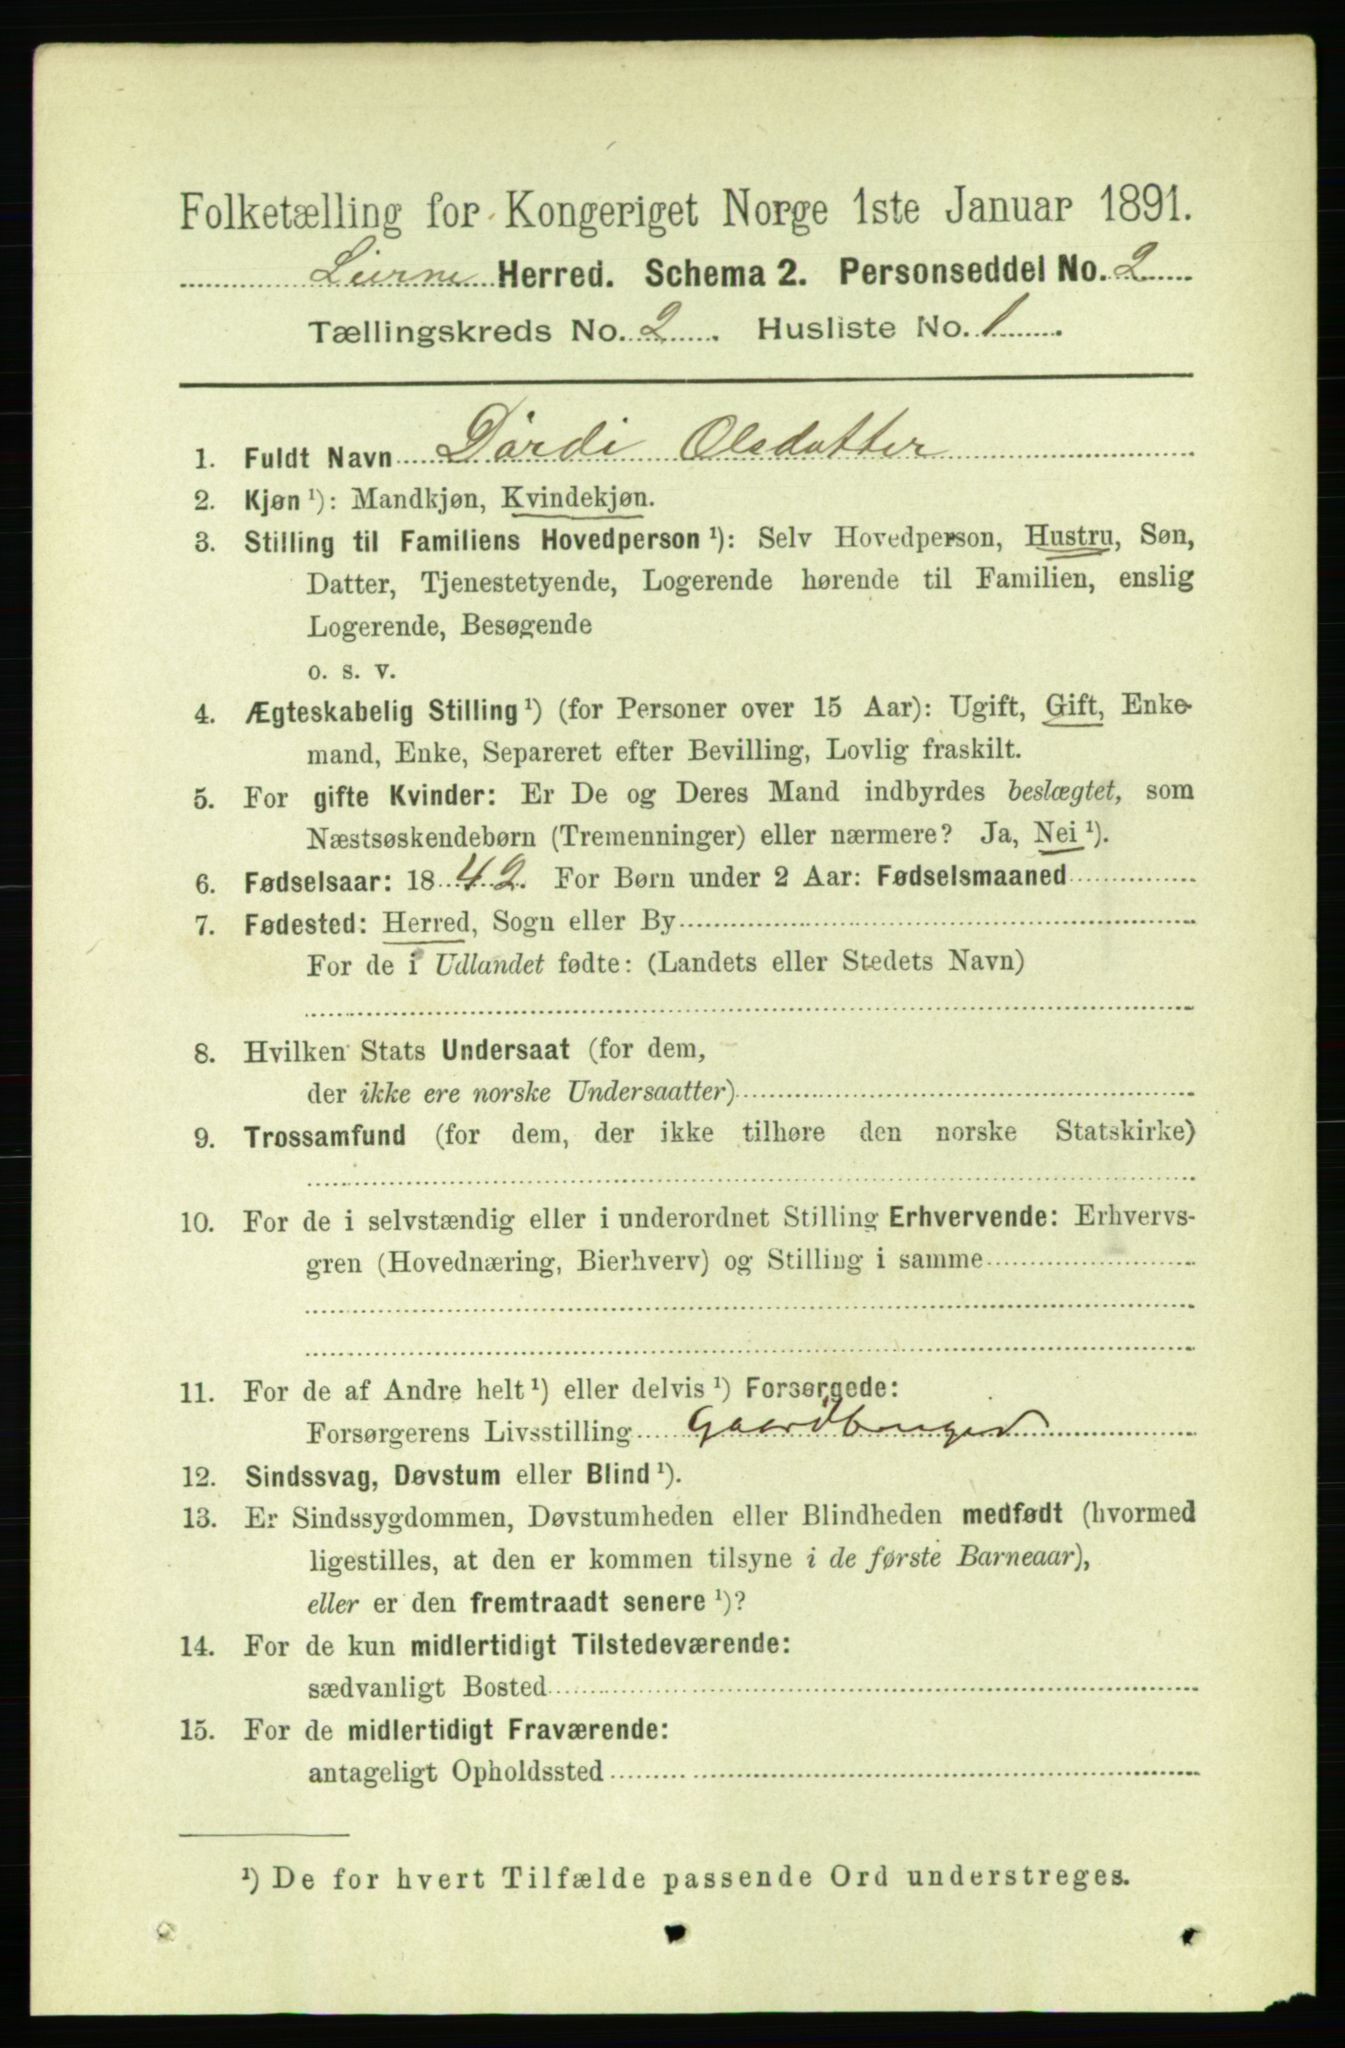 Folketælling for Kongeriget Norge 1ste Januar 1891.
Lierne Herred. Schema 2. Personseddel No. 2
Tællingskreds No. 2. Husliste No. 1.
1. Fuldt Navn Dårdi Olsdatter
2. Kjøn ¹): Mandkjøn, Kvindekjøn.
3. Stilling til Familiens Hovedperson ¹): Selv Hovedperson, Hustru, Søn,
Datter, Tjenestetyende, Logerende hørende til Familien, enslig
Logerende, Besøgende
o. s. v.
4. Ægteskabelig Stilling ¹) (for Personer over 15 Aar): Ugift, Gift, Enke-
mand, Enke, Separeret efter Bevilling, Lovlig fraskilt.
5. For gifte Kvinder: Er De og Deres Mand indbyrdes beslægtet, som
Næstsøskendebørn (Tremenninger) eller nærmere? Ja, Nei ¹).
6. Fødselsaar: 1842. For Børn under 2 Aar: Fødselsmaaned
7. Fødested: Herred, Sogn eller By
For de i Udlandet fødte: (Landets eller Stedets Navn)
8. Hvilken Stats Undersaat (for dem,
der ikke ere norske Undersaatter)
9. Trossamfund (for dem, der ikke tilhøre den norske Statskirke)
10. For de i selvstændig eller i underordnet Stilling Erhvervende: Erhvervs-
gren (Hovednæring, Bierhverv) og Stilling i samme
11. For de af Andre helt ¹) eller delvis ¹) Forsørgede:
Forsørgerens Livsstilling Gaardbruger
12. Sindssvag, Døvstum eller Blind ¹).
13. Er Sindssygdommen, Døvstumheden eller Blindheden medfødt (hvormed
ligestilles, at den er kommen tilsyne i de første Barneaar),
eller er den fremtraadt senere ¹)?
14. For de kun midlertidigt Tilstedeværende:
sædvanligt Bosted
15. For de midlertidigt Fraværende:
antageligt Opholdssted
¹) De for hvert Tilfælde passende Ord understreges.